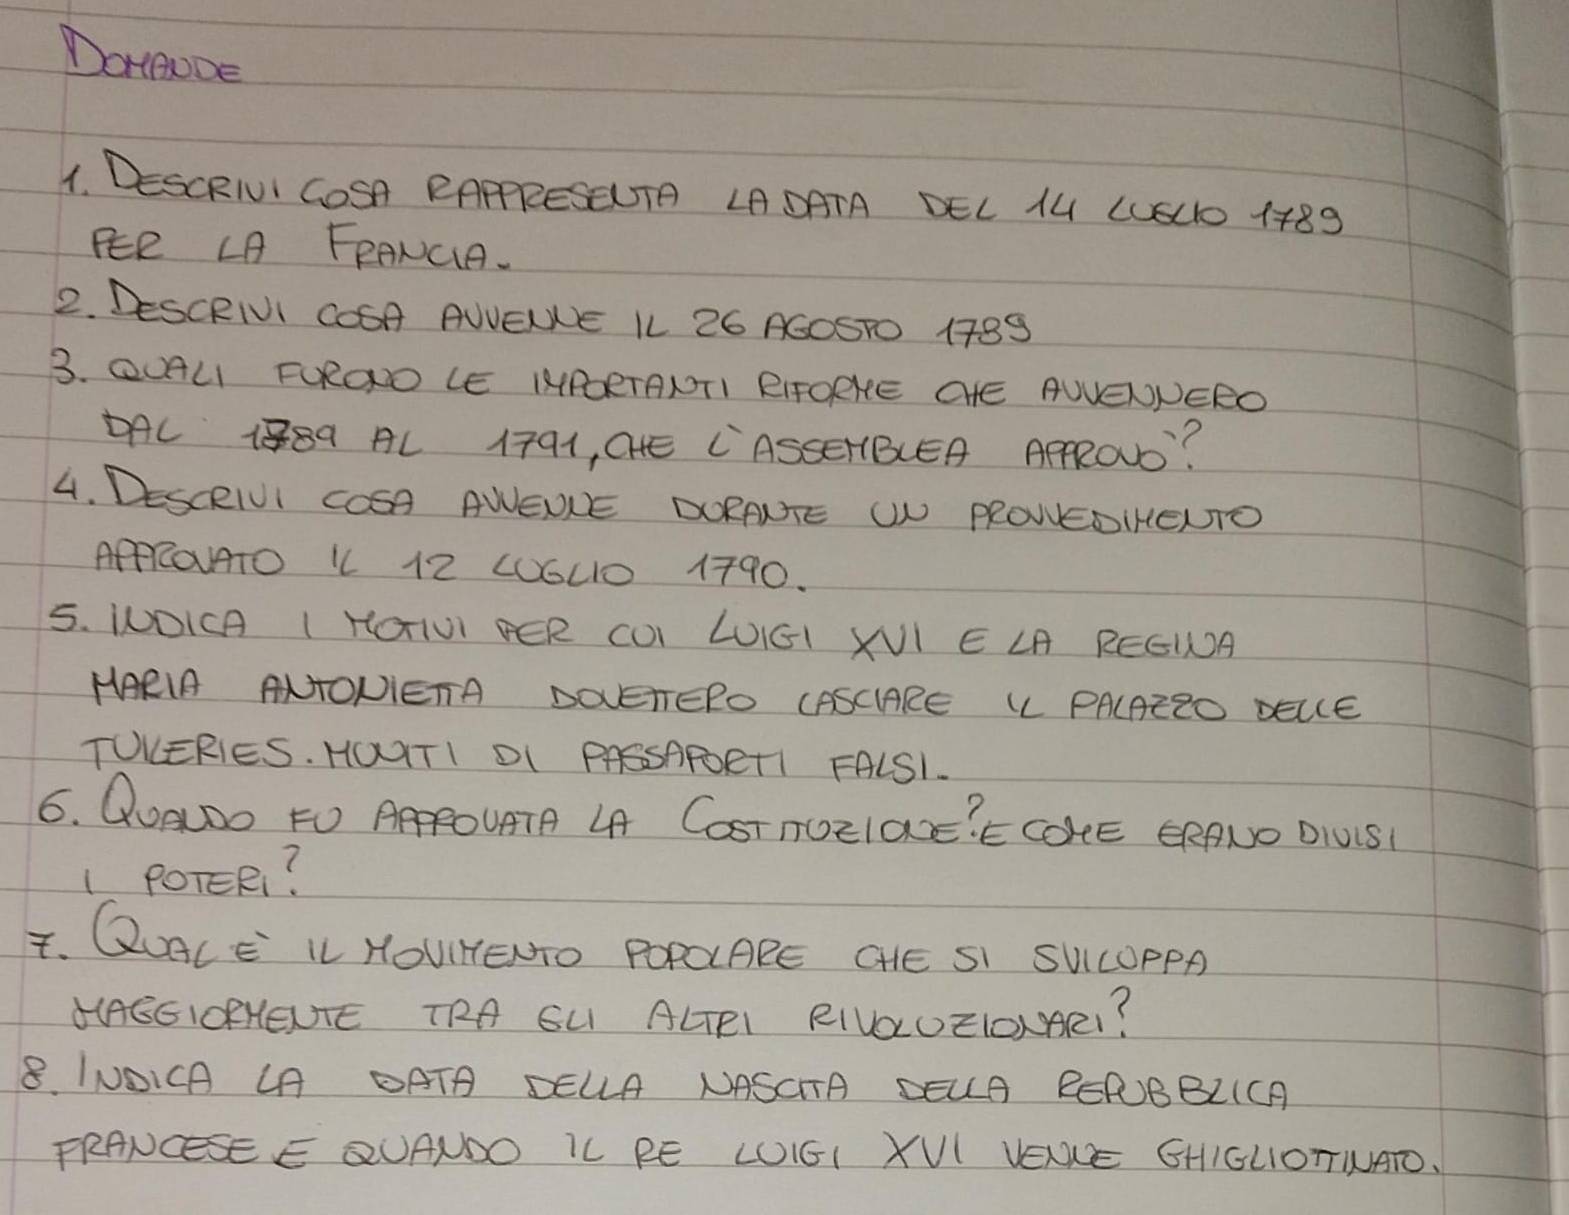 DOMANDE
1. DESCRIVI COSA RAPPRESENTA LA DATA DEL 14 LUGLIO 1789
PER LA FRANCIA.
2. DESCRIVI COSA AVVENNE IL 26 AGOSTO 1789
3. QUALI FURONO LE IMPORTANTI RIFORME CHE AVVENNERO
DAL 1789 AL 1791, CHE L'ASSEMBLEA APPROVÒ?
4. DESCRIVI COSA AVVENNE DURANTE UN PROVVEDIMENTO
APPROVATO IL 12 LUGLIO 1790.
5. INDICA I MOTIVI PER CUI LUIGI XVI E LA REGINA
MARIA ANTONIETTA DOVETTERO LASCIARE IL PALAZZO DELLE
TUILERIES. MUNITI DI PASSAPORTI FALSI.
6. QUANDO FU APPROVATA LA COSTITUZIONE? E COME ERANO DIVISI
I POTERI?
7. QUAL È IL MOVIMENTO POPOLARE CHE SI SVILUPPA
MAGGIORMENTE TRA GLI ALTRI RIVOLUZIONARI?
8. INDICA LA DATA DELLA NASCITA DELLA REPUBBLICA
FRANCESE E QUANDO IL RE LUIGI XVI VENNE GHIGLIOTTINATO.